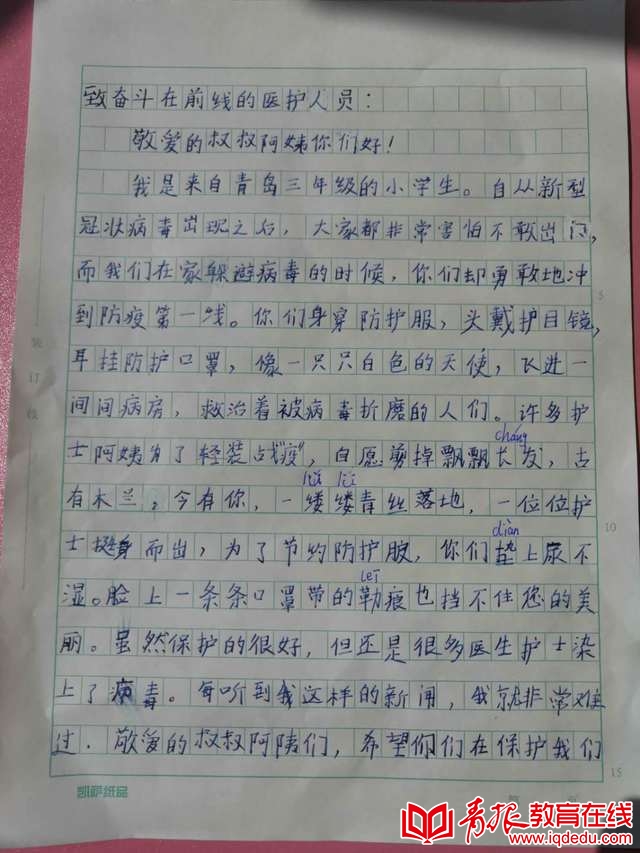 致奋斗在前线的医护人员：
敬爱的叔叔阿姨你们好！
我是来自青岛三年级的小学生。自从新型
冠状病毒出现之后，大家都非常害怕不敢出门，
而我们在家躲避病毒的时候，你们却勇敢地冲
到防疫第一线。你们身穿防护服，头戴护目镜，
耳挂防护口罩，像一只只白色的天使，飞进一
间间病房，救治着被病毒折磨的人们。许多护
cháng
士阿姨为了轻装战“疫”，自愿剪掉飘飘长发，古
lǚ lǚ
有木兰，今有你，一缕缕青丝落地，一位位护
diàn
士挺身而出，为了节约防护服，你们垫上尿不
lēi
湿。脸上一条条口罩带的勒痕也挡不住您的美
丽。虽然保护的很好，但还是很多医生护士染
上了病毒。每听到我这样的新闻，我就非常难
过．敬爱的叔叔阿姨们，希望你们在保护我们
装
订
线
5
10
15
凯萨纸品
青报教育在线
www.iqdedu.com